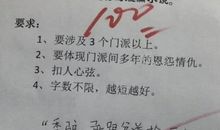 说。
100
要求：
1、要涉及 3 个门派以上。
2、要体现门派间多年的恩怨情仇。
3、扣人心弦。
4、字数不限，越短越好。